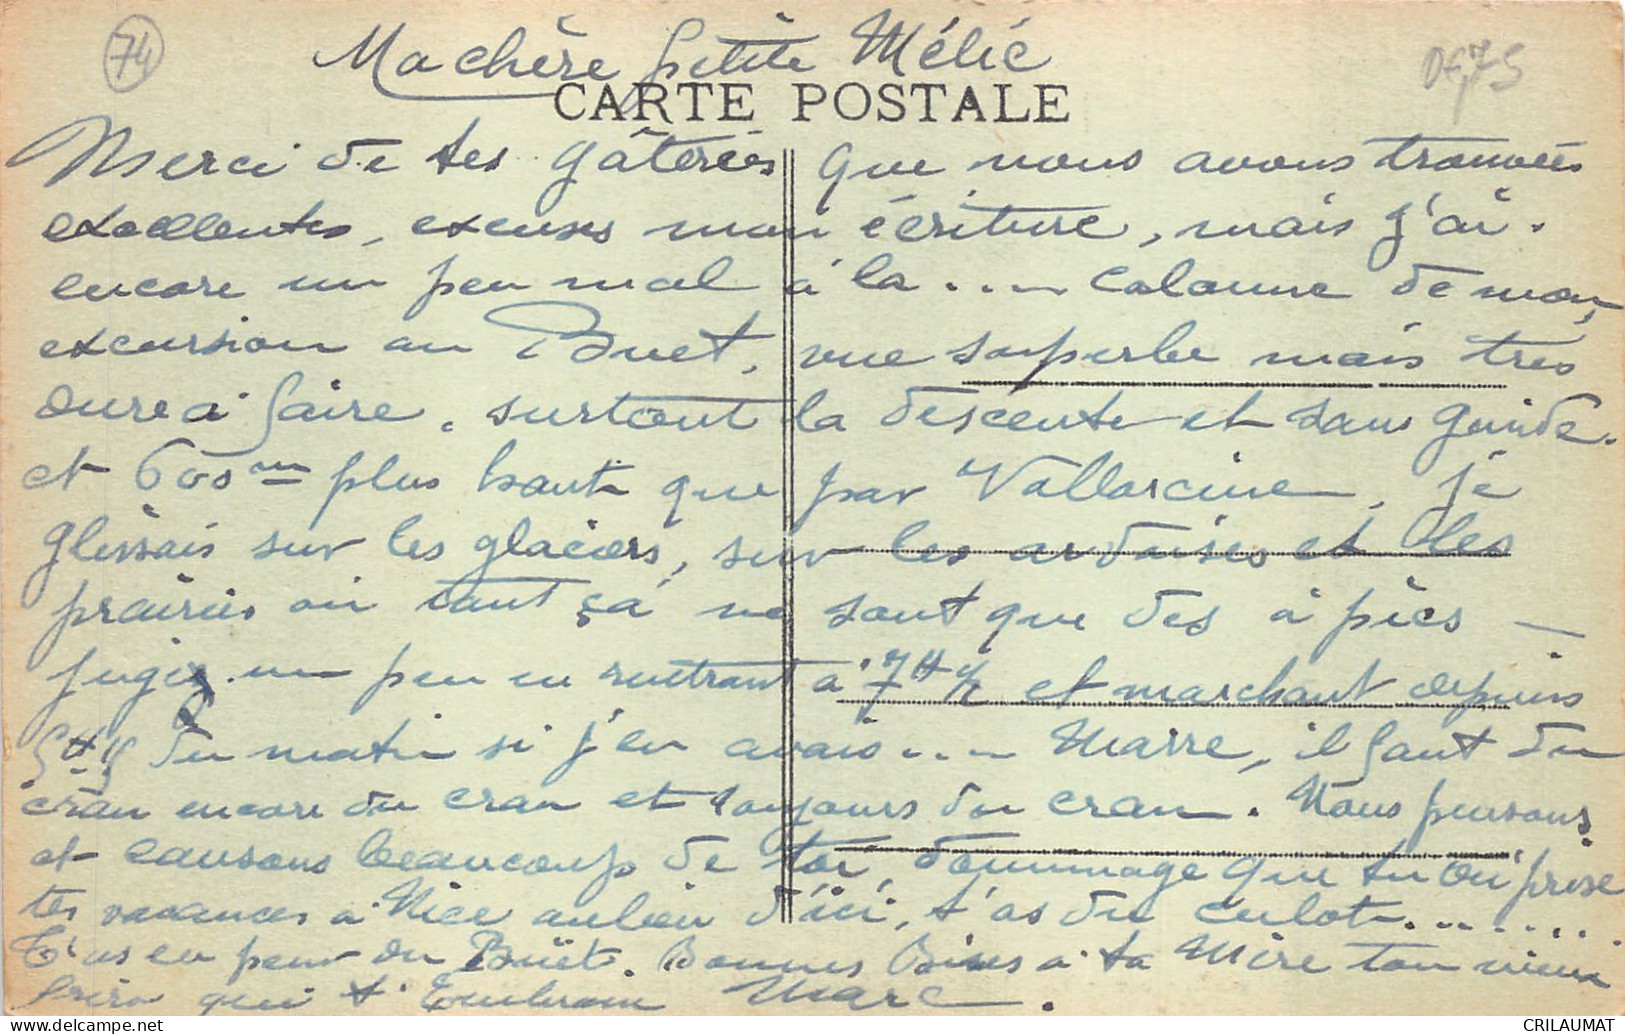 74
Ma chère petite Mélie
CARTE POSTALE
Merci de tes gâteries que nous avons trouvées
excellentes, excuses mon écriture, mais j'ai
encore un peu mal à la .... colonne de mon
excursion au Buet, vue superbe mais très
dure à faire, surtout la descente et sans guide.
et 600m plus haut que par Vallorcine, je
glissais sur les glaciers, sur les ardoises et les
prairies où tout ça ne sont que des à pics —
juges un peu en rentrant à 7H½ et marchant depuis
5H½ du matin si j'en avais .... Marre, il faut du
cran encore du cran et toujours du cran. Nous pensons
et causons beaucoup de toi, dommage que tu ai prise
tes vacances à Nice au lieu d'ici, t'as du culot .......
T'as eu peur du Buët. Bonnes Bises à ta Mère ton vieux
frère qui t'Embrasse Marc.
CRILAUMAT